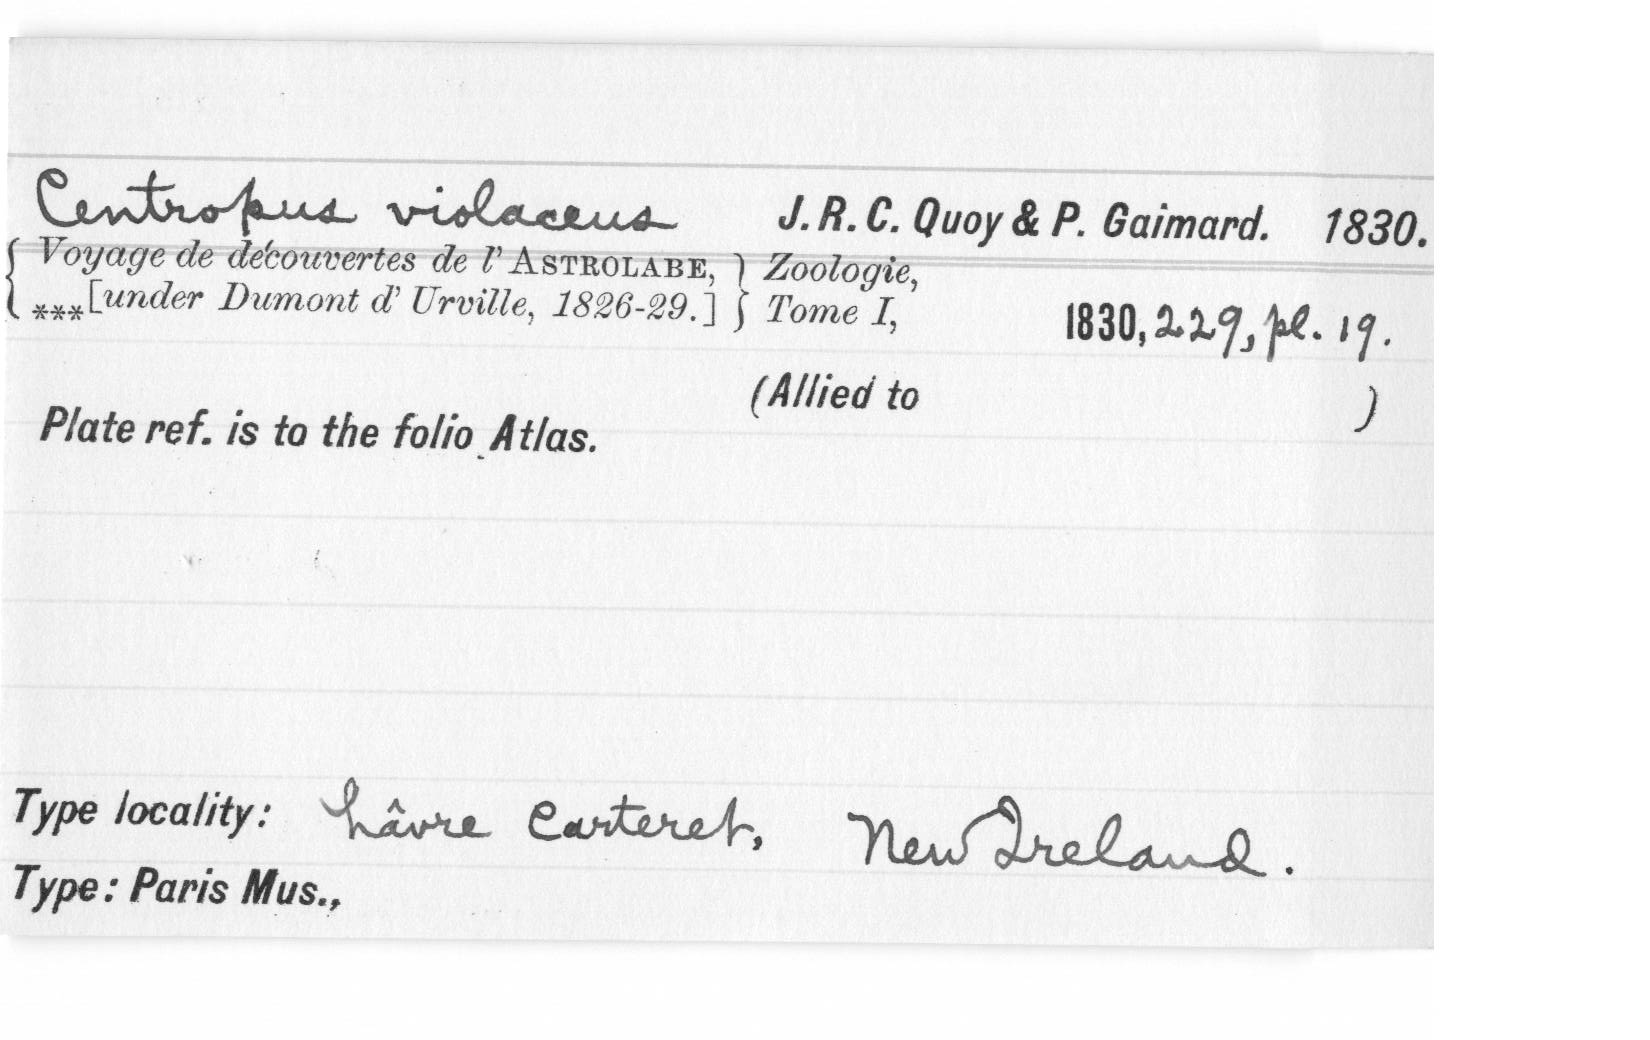 Centropus violaceus J. R. C. Quoy & P. Gaimard. 1830.
{ Voyage de découvertes de l' ASTROLABE, } Zoologie,
{ ***[under Dumont d' Urville, 1826-29.] } Tome I, 1830, 229, pl. 19.
(Allied to )
Plate ref. is to the folio Atlas.
Type locality: hâvre Carteret, New Ireland.
Type: Paris Mus.,